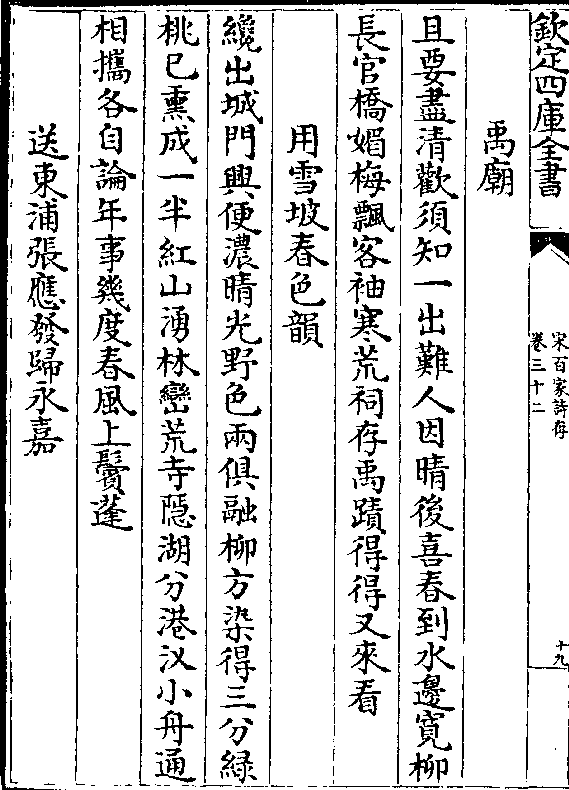 欽定四庫全書
宋百家詩存
卷三十二
十九
禹廟
且要盡清歡須知一出難人因晴後喜春到水邊寛柳
長官橋媚梅飄客袖寒荒祠存禹蹟得得又來看
用雪坡春色韻
纔出城門興便濃晴光野色兩俱融柳方染得三分綠
桃已熏成一半紅山湧林巒荒寺隱湖分港汊小舟通
相攜各自論年事幾度春風上鬢蓬
送東浦張應發歸永嘉